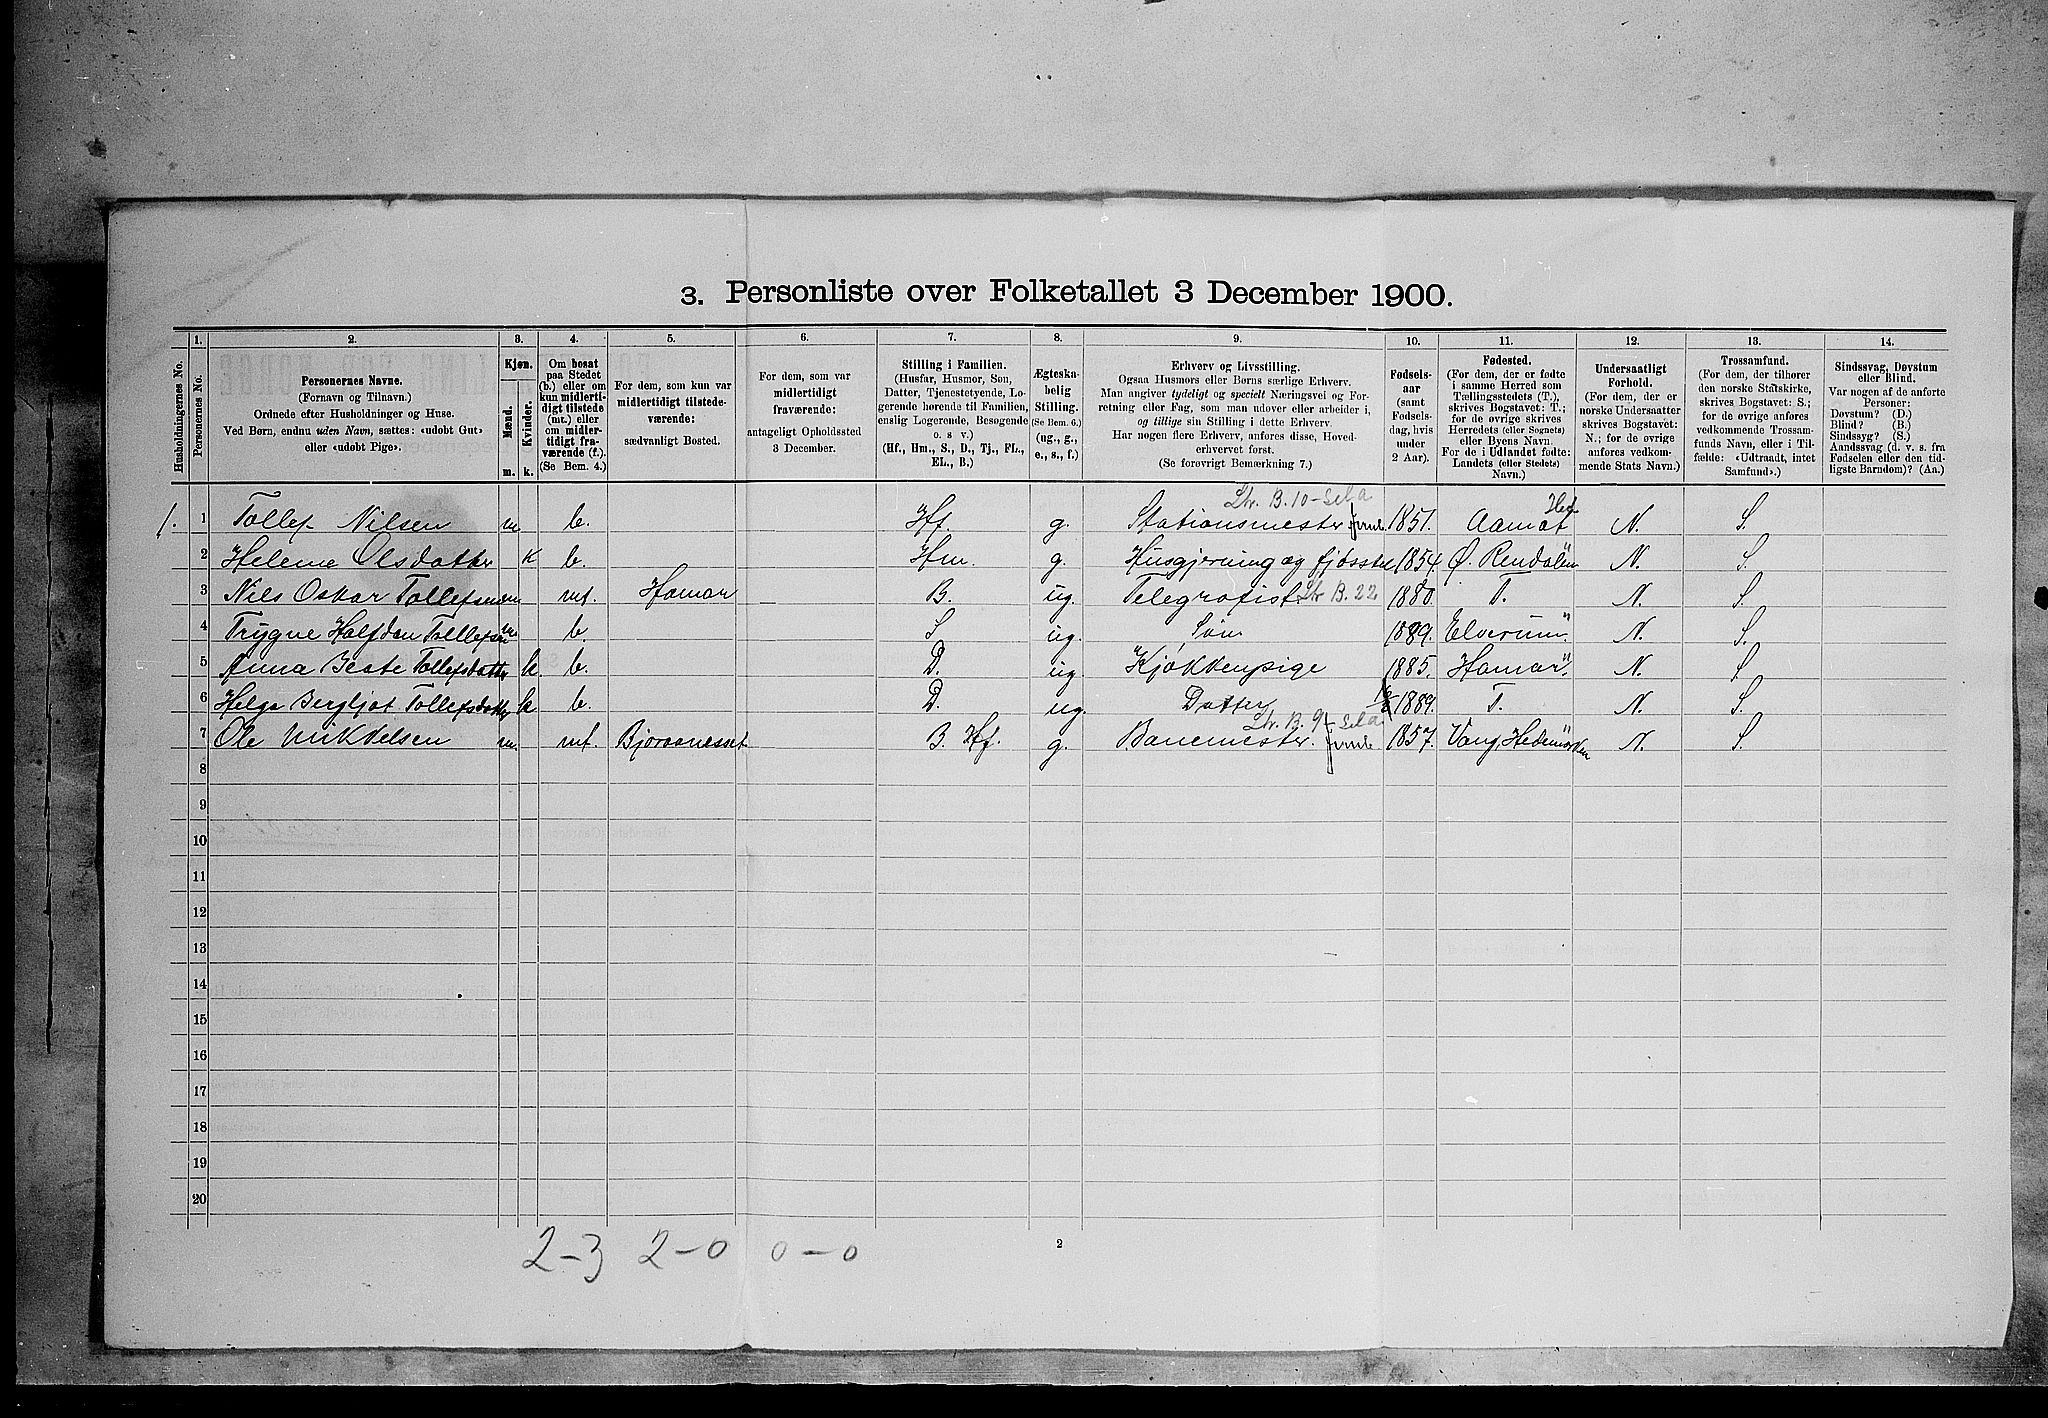 3. Personliste over Folketallet 3 December 1900.
Husholdningernes No.
1. Personernes No.
2. Personernes Navne. (Fornavn og Tilnavn.) Ordnede efter Husholdninger og Huse. Ved Børn, endnu uden Navn, sættes: «udøbt Gut» eller «udøbt Pige».
3. Kjøn. Mænd. m. Kvinder. k.
4. Om bosat paa Stedet (b.) eller om kun midlertidigt tilstede (mt.) eller om midlertidigt fraværende (f.). (Se Bem. 4.)
5. For dem, som kun var midlertidigt tilstedeværende: sædvanligt Bosted.
6. For dem, som var midlertidigt fraværende: antageligt Opholdssted 3 December.
7. Stilling i Familien. (Husfar, Husmor, Søn, Datter, Tjenestetyende, Logerende hørende til Familien, enslig Logerende, Besøgende o. s v.) (Hf., Hm., S., D., Tj., FL., EL., B.)
8. Ægteskabelig Stilling. (Se Bem. 6.) (ug., g., e., s., f.)
9. Erhverv og Livsstilling. Ogsaa Husmors eller Børns særlige Erhverv. Man angiver tydeligt og specielt Næringsvei og Forretning eller Fag, som man udover eller arbeider i, og tillige sin Stilling i dette Erhverv. Har nogen flere Erhverv, anføres disse, Hovederhvervet først. (Se forøvrigt Bemærkning 7.)
10. Fødselsaar (samt Fødselsdag, hvis under 2 Aar).
11. Fødested. (For dem, der er fødte i samme Herred som Tællingsstedets (T.), skrives Bogstavet: T.; for de øvrige skrives Herredets (eller Sognets) eller Byens Navn. For de i Udlandet fødte: Landets (eller Stedets) Navn.)
12. Undersaatligt Forhold. (For dem, der er norske Undersaatter skrives Bogstavet: N.; for de øvrige anføres vedkommende Stats Navn.)
13. Trossamfund. (For dem, der tilhører den norske Statskirke, skrives Bogstavet: S.; for de øvrige anføres vedkommende Trossamfunds Navn, eller i Tilfælde: «Udtraadt, intet Samfund».)
14. Sindssvag, Døvstum eller Blind. Var nogen af de anførte Personer: Døvstum? (D.) Blind? (B.) Sindssyg? (S.) Aandssvag (d. v. s. fra Fødselen eller den tidligste Barndom)? (Aa.)
1. 1 Tollef Nilsen m b. Hf. g. Stationsmester Jernb. Str. B. 10 1851. Aamot Hed. N. S.
2 Helene Olsdatter k b. Hm. g. Husgjerning og fjøsstel 1854 Ø. Rendalen " N. S.
3 Nils Oskar Tollefsen m mt. Hamar B. ug. Telegrafist. Str. B. 22 1880. T. N. S.
4 Trygve Halfdan Tollefsen m b. S ug. Søn 1889. Elverum " N. S.
5 Anna Beate Tollefsdatter k. b. D. ug. Kjøkkenpige 1885. Hamar " N. S
6 Helga Bergljot Tollefsdatter k b. D. ug. Datter 1889. T. N. S.
7 Ole Mikkelsen m. mt. Bjøraanesset B. Hf. g. Banemester. Jernb. Str. B. 9 1857. Vang, Hedemarken " N. S.
8
9
10
11
12
13
14
15
16
17
18
19
20
2-3 2-0 0-0
2